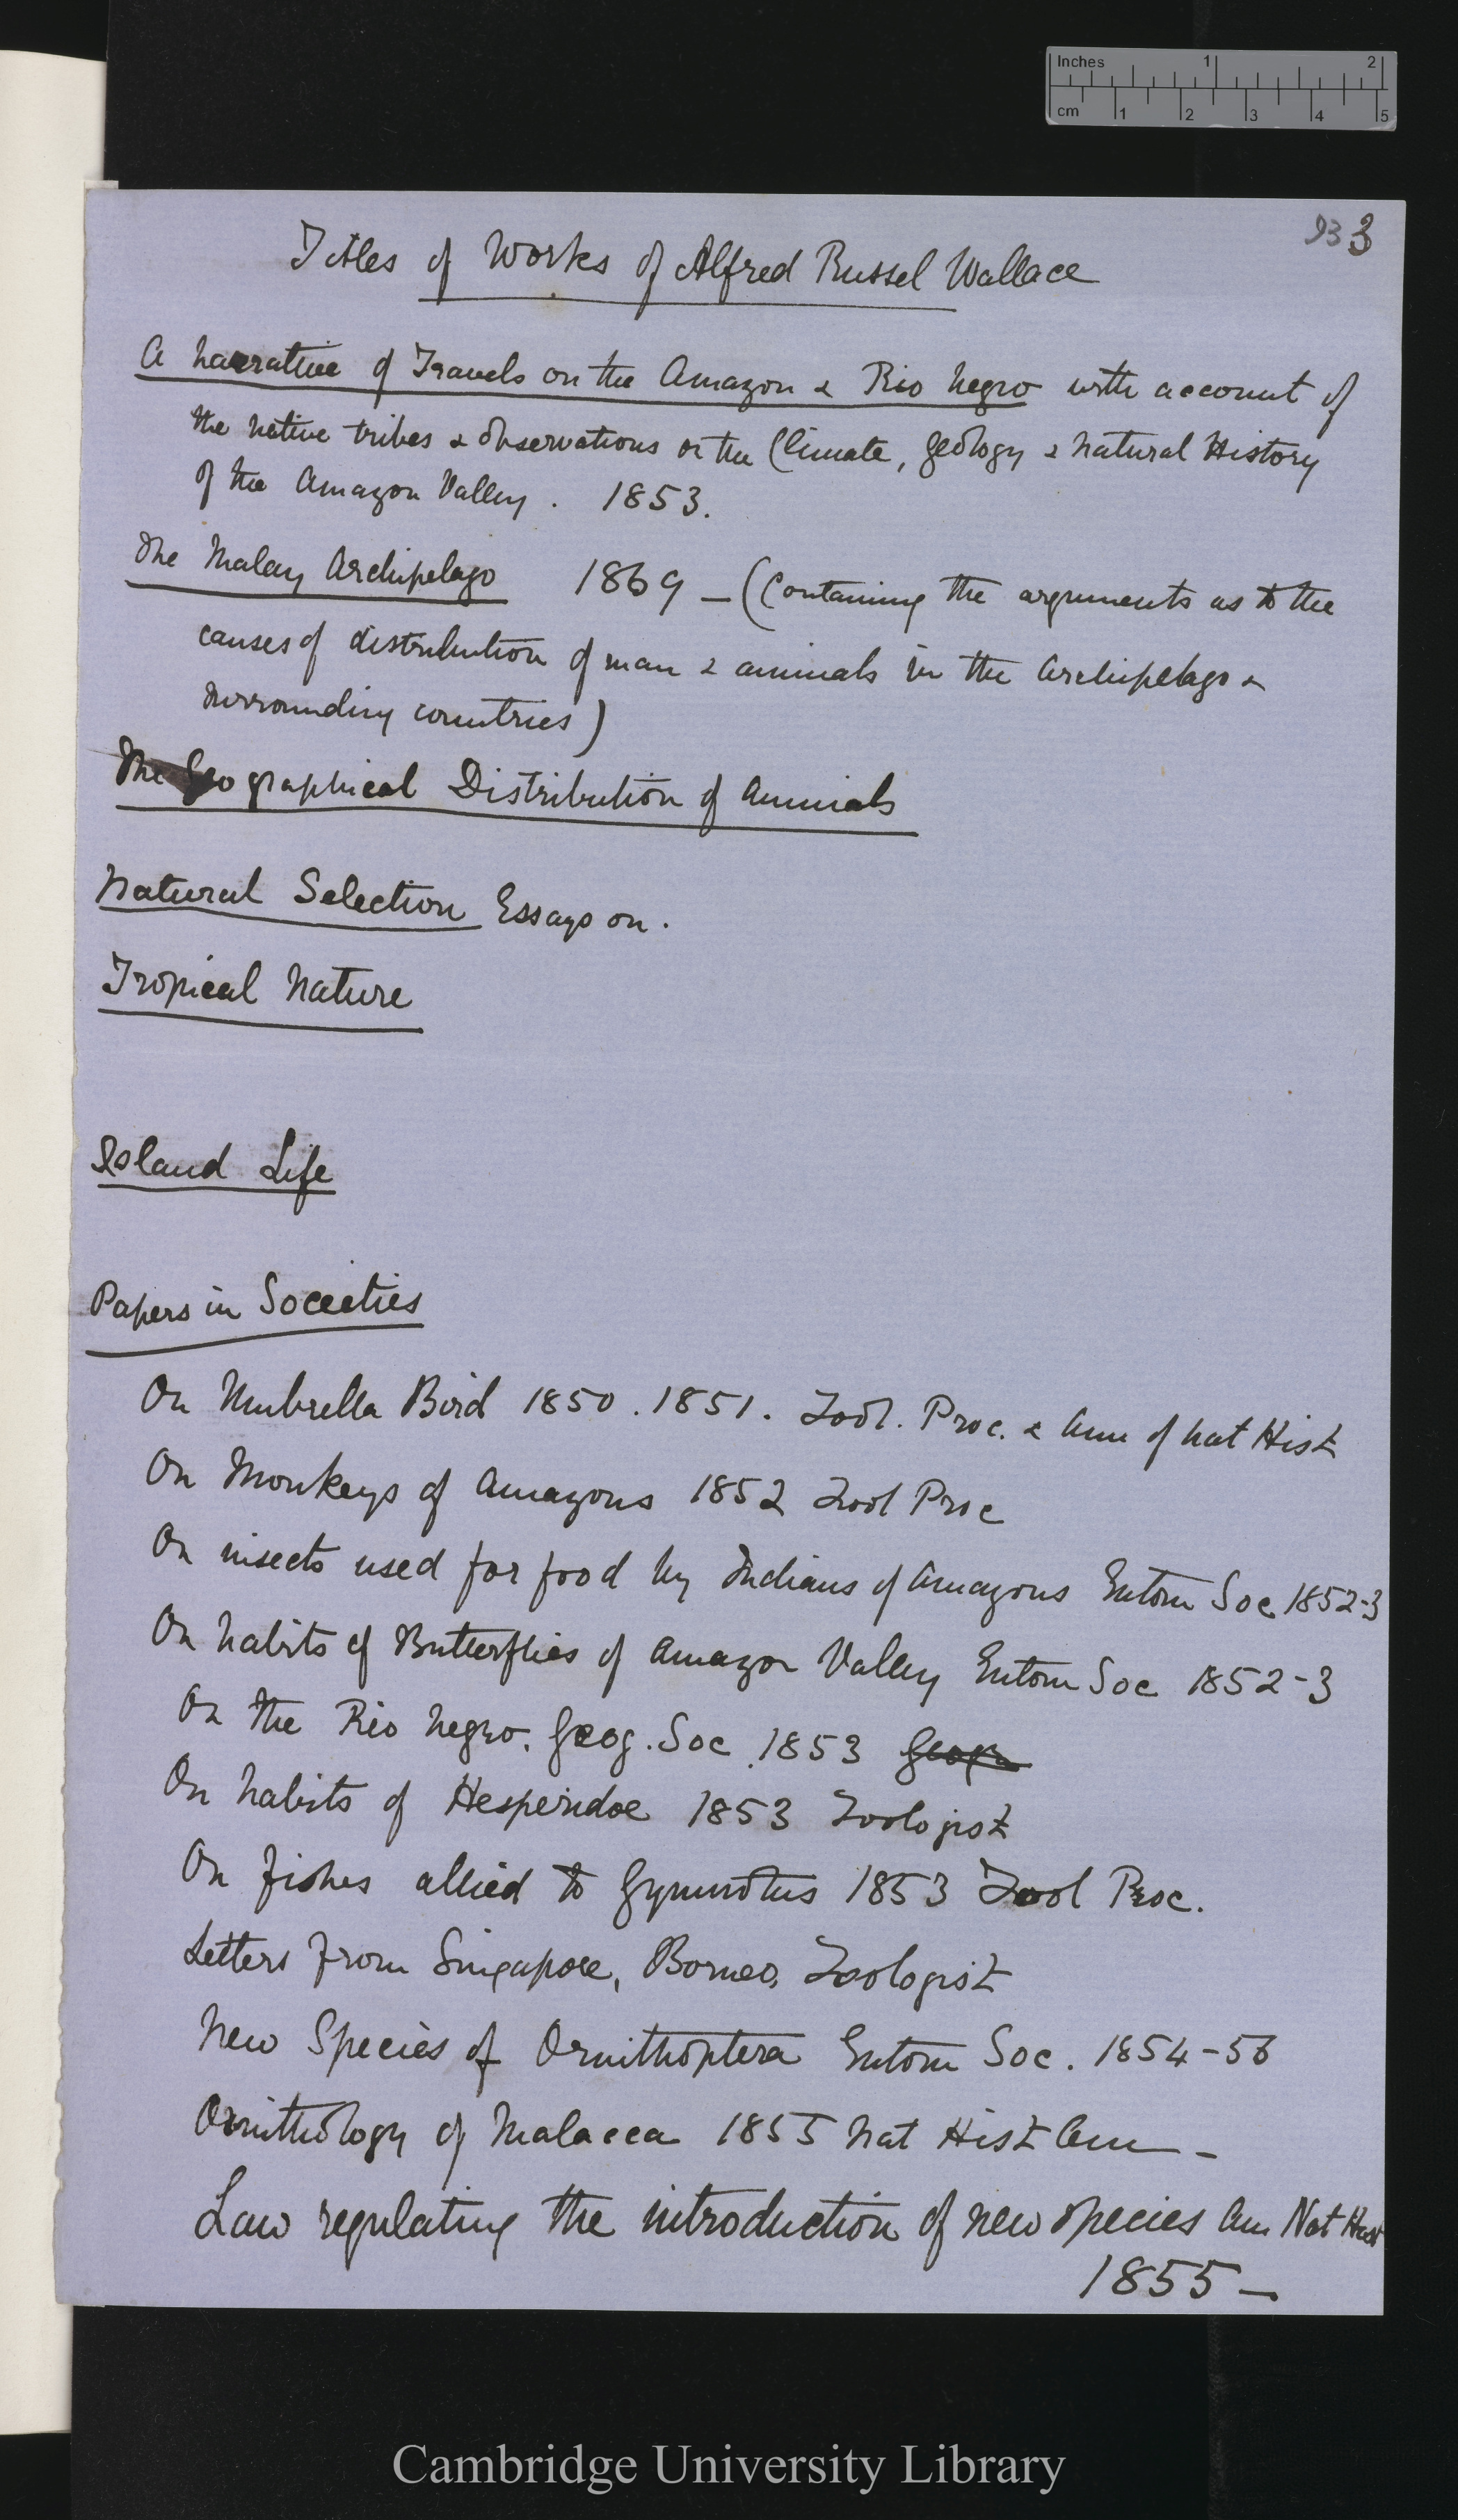 Inches 1 2
cm 1 2 3 4 5
93 3
Titles of Works of Alfred Russel Wallace
A narrative of Travels on the Amazon & Rio Negro with account of
the native tribes & observations on the Climate, geology & Natural History
of the Amazon Valley. 1853.
The Malay Archipelago 1869 – (Containing the arguments as to the
causes of distribution of man & animals in the Archipelago &
surrounding countries)
The Geographical Distribution of Animals
Natural Selection Essays on.
Tropical Nature
Island Life
Papers in Societies
On Umbrella Bird 1850. 1851. Zool. Proc. & Ann of Nat Hist
On Monkeys of Amazons 1852 Zool Proc
On insects used for food by Indians of Amazons Entom Soc 1852-3
On habits of Butterflies of Amazon Valley Entom Soc 1852-3
On the Rio Negro. Geog. Soc. 1853 Geogr
On habits of Hesperidae 1853 Zoologist
On fishes allied to Gymnotus 1853 Zool Proc.
Letters from Singapore, Borneo, Zoologist
New Species of Ornithoptera Entom Soc. 1854-56
Ornithology of Malacca 1855 Nat Hist Ann –
Law regulating the introduction of new species Ann Nat Hist
1855 –
Cambridge University Library